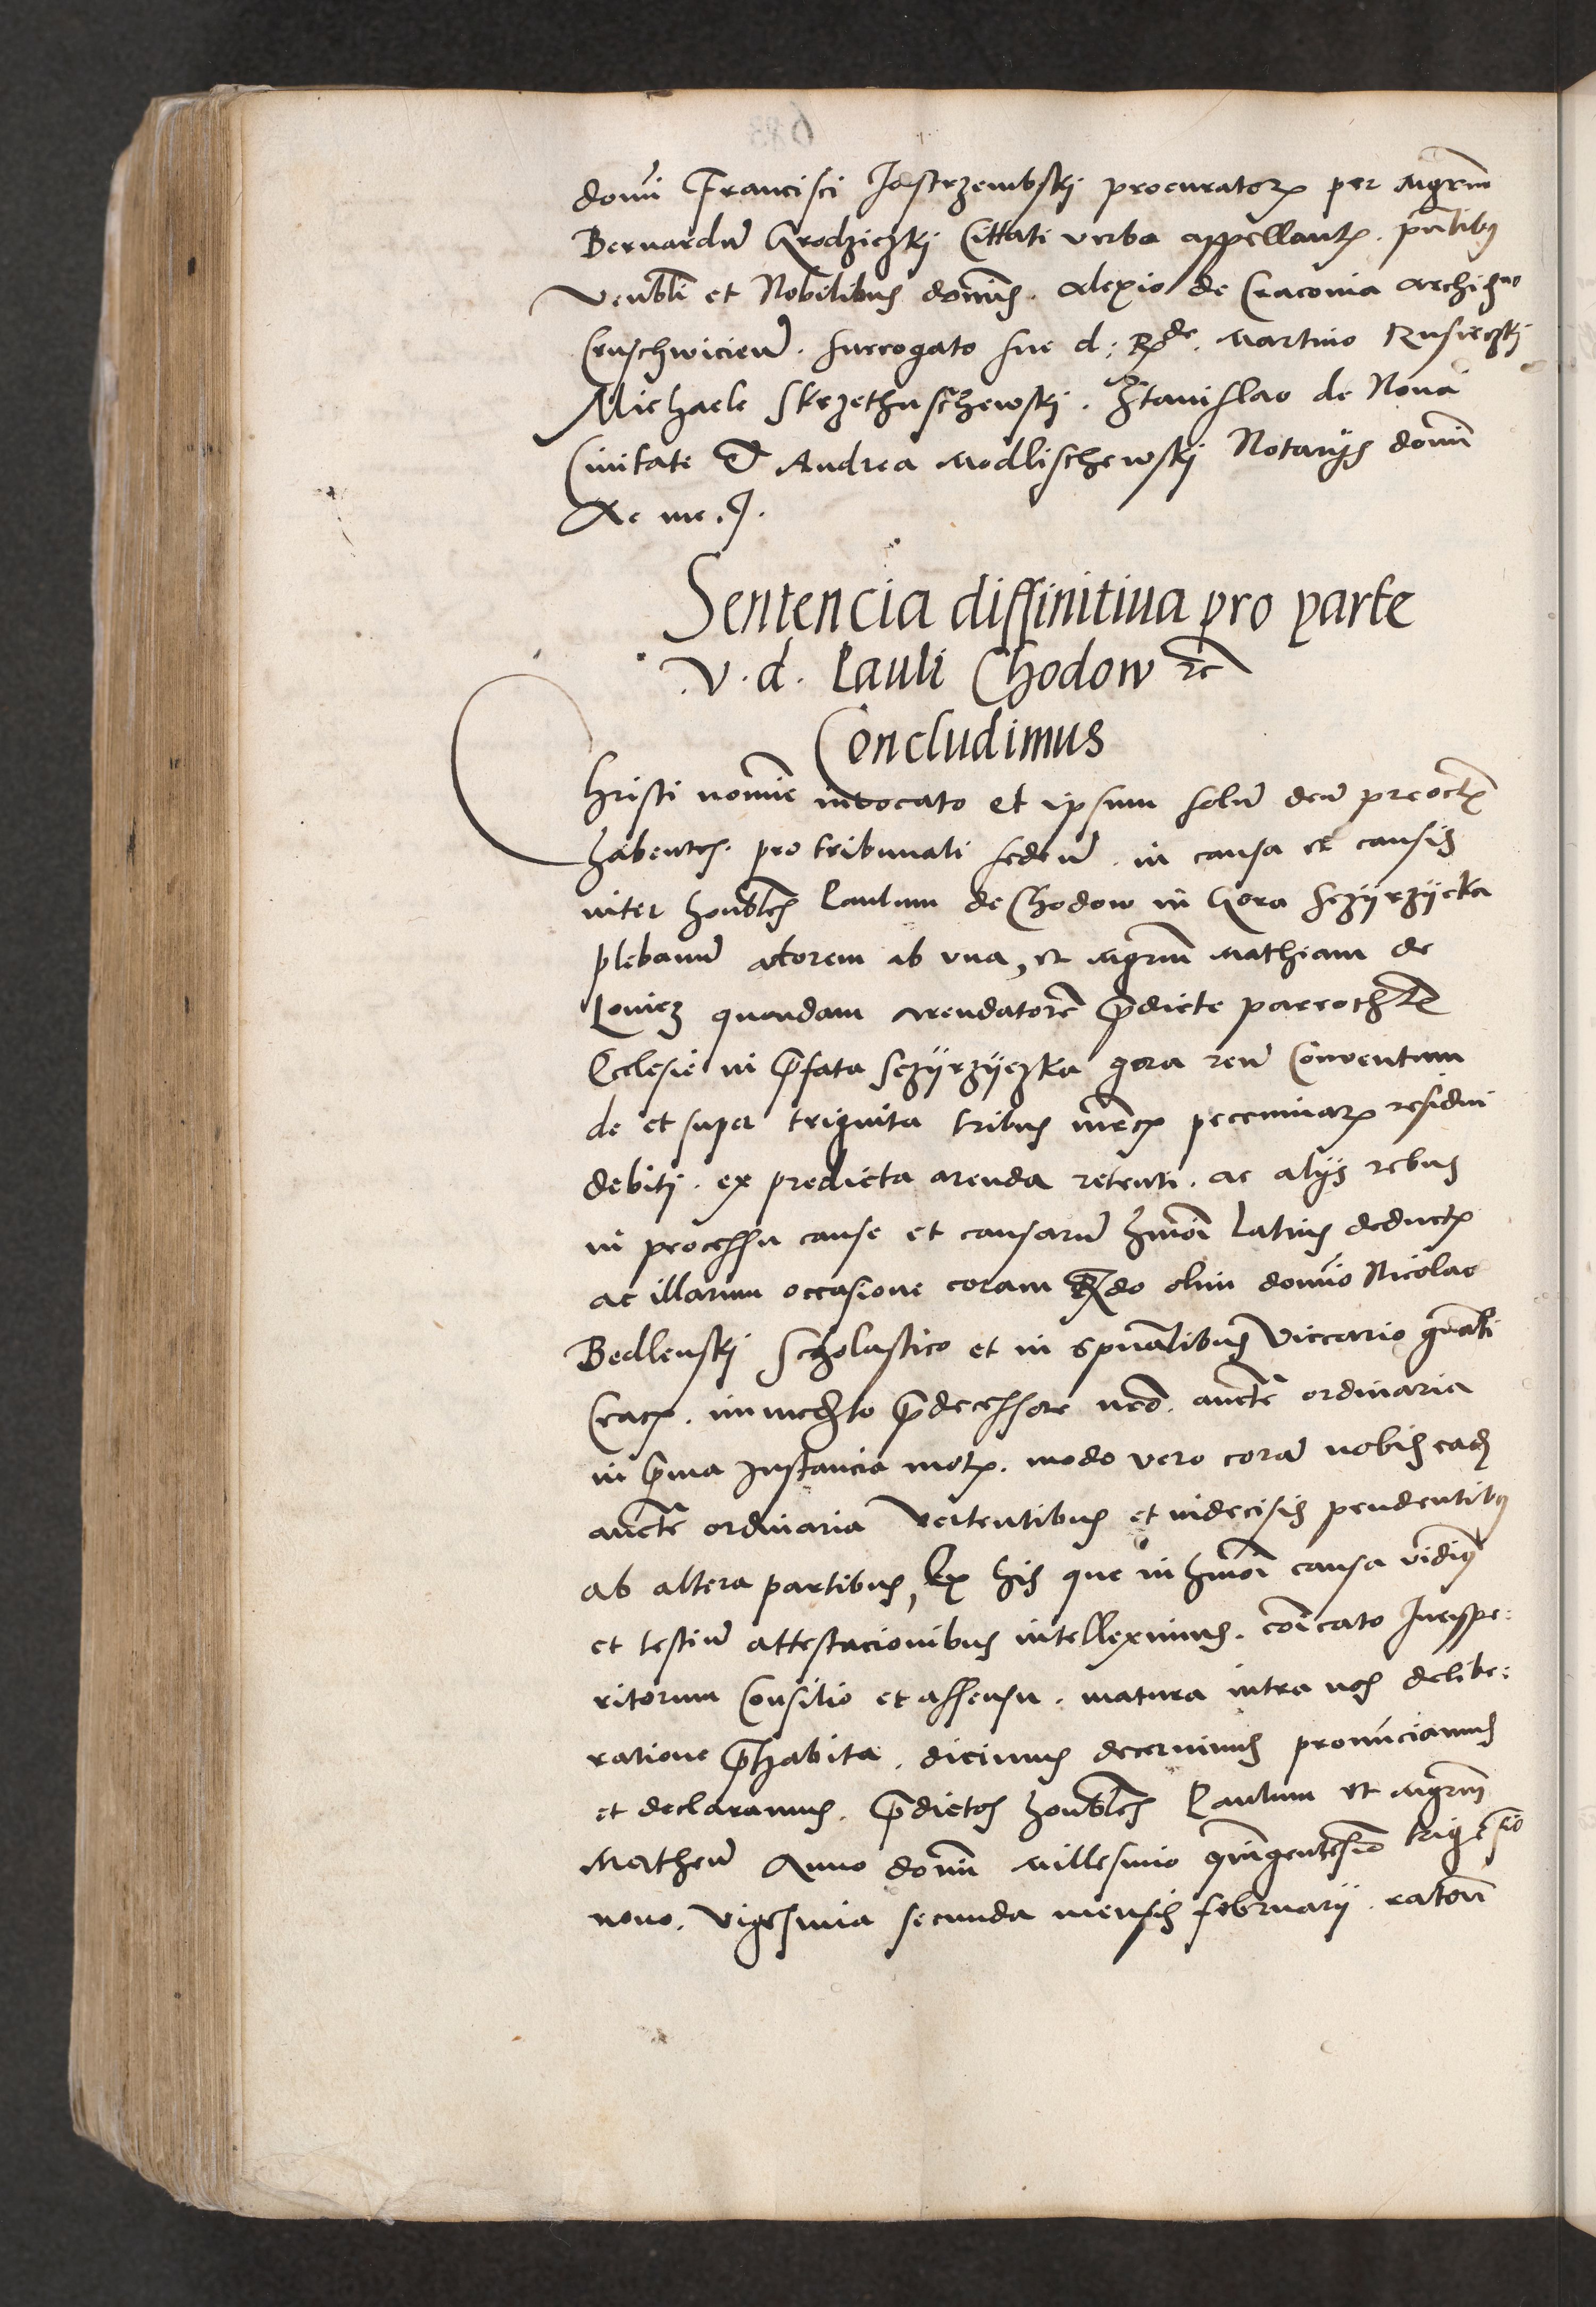 domini Francisci Jastrzembskj procuratorꝝ per Mgrm̄
Bernardū Grodziczkj Cittati verba appellantꝭ. pn̄tibꝰ
Venēbli et Nobilibus dominis. Alexio de Cracovia Archidno
Cruschwicieñ. surrogato sue d: Rde. Martino Rusieczkj
Michaele Skrzethuschewskj. Stanislao de Nova
Civitate & Andrea Modlischewskj Notarijs domi
Ac me.J.
Sentencia diffinitiua pro parte
.V.d. Pauli Chodow rc
Concludimus
Christi nomīe invocato et ipsum solū deū preoctꝭ
habentes. pro tribunali sedeñ. in causa et causis
inter honbles Paulum de Chodow in Gora Sczijrzijcka
plebanū actorem ab una, et Mgrm̄ Mathiam de
Lovicz quondam arendatorē p̄dicte parrochlis
Ecclesie in p̄fata Sczijrzijczka gora reū Conventum
de et super triginta tribus mrcꝭ pecuniarꝝ residui
debitj. ex predicta arenda retenti. ac alijs rebus
in processu cause et causarū hmōi latius deductꝭ
ac illarum occasione coram Rdo olim domīo Nicolao
Bedlenskj Scholastico et in spūalibus Viccario gnāli
Cracꝭ. immedto p̄decessore nr̄o. aucte ordinaria
in p̄ma Instancia motꝭ. modo vero corā nobis eadē
aucte ordinaria Vertentibus et indecisis pendentibꝰ
ab altera partibus, Ex his que in hmōi causa vidimꝰ
et testiū attestacionibus intelleximus. cōicato Jurispe:
ritorum Consilio et assensu. matura intra nos delibe:
ratione p̄habita. dicimus decernimus pronūciamus
et declaramus. p̄dictos honbles Paulum et Mgrm̄
Matheū Anno domi Millesimo qngentesīo trigesīo
nono. Vigesima secunda mensis februarij. ratōni